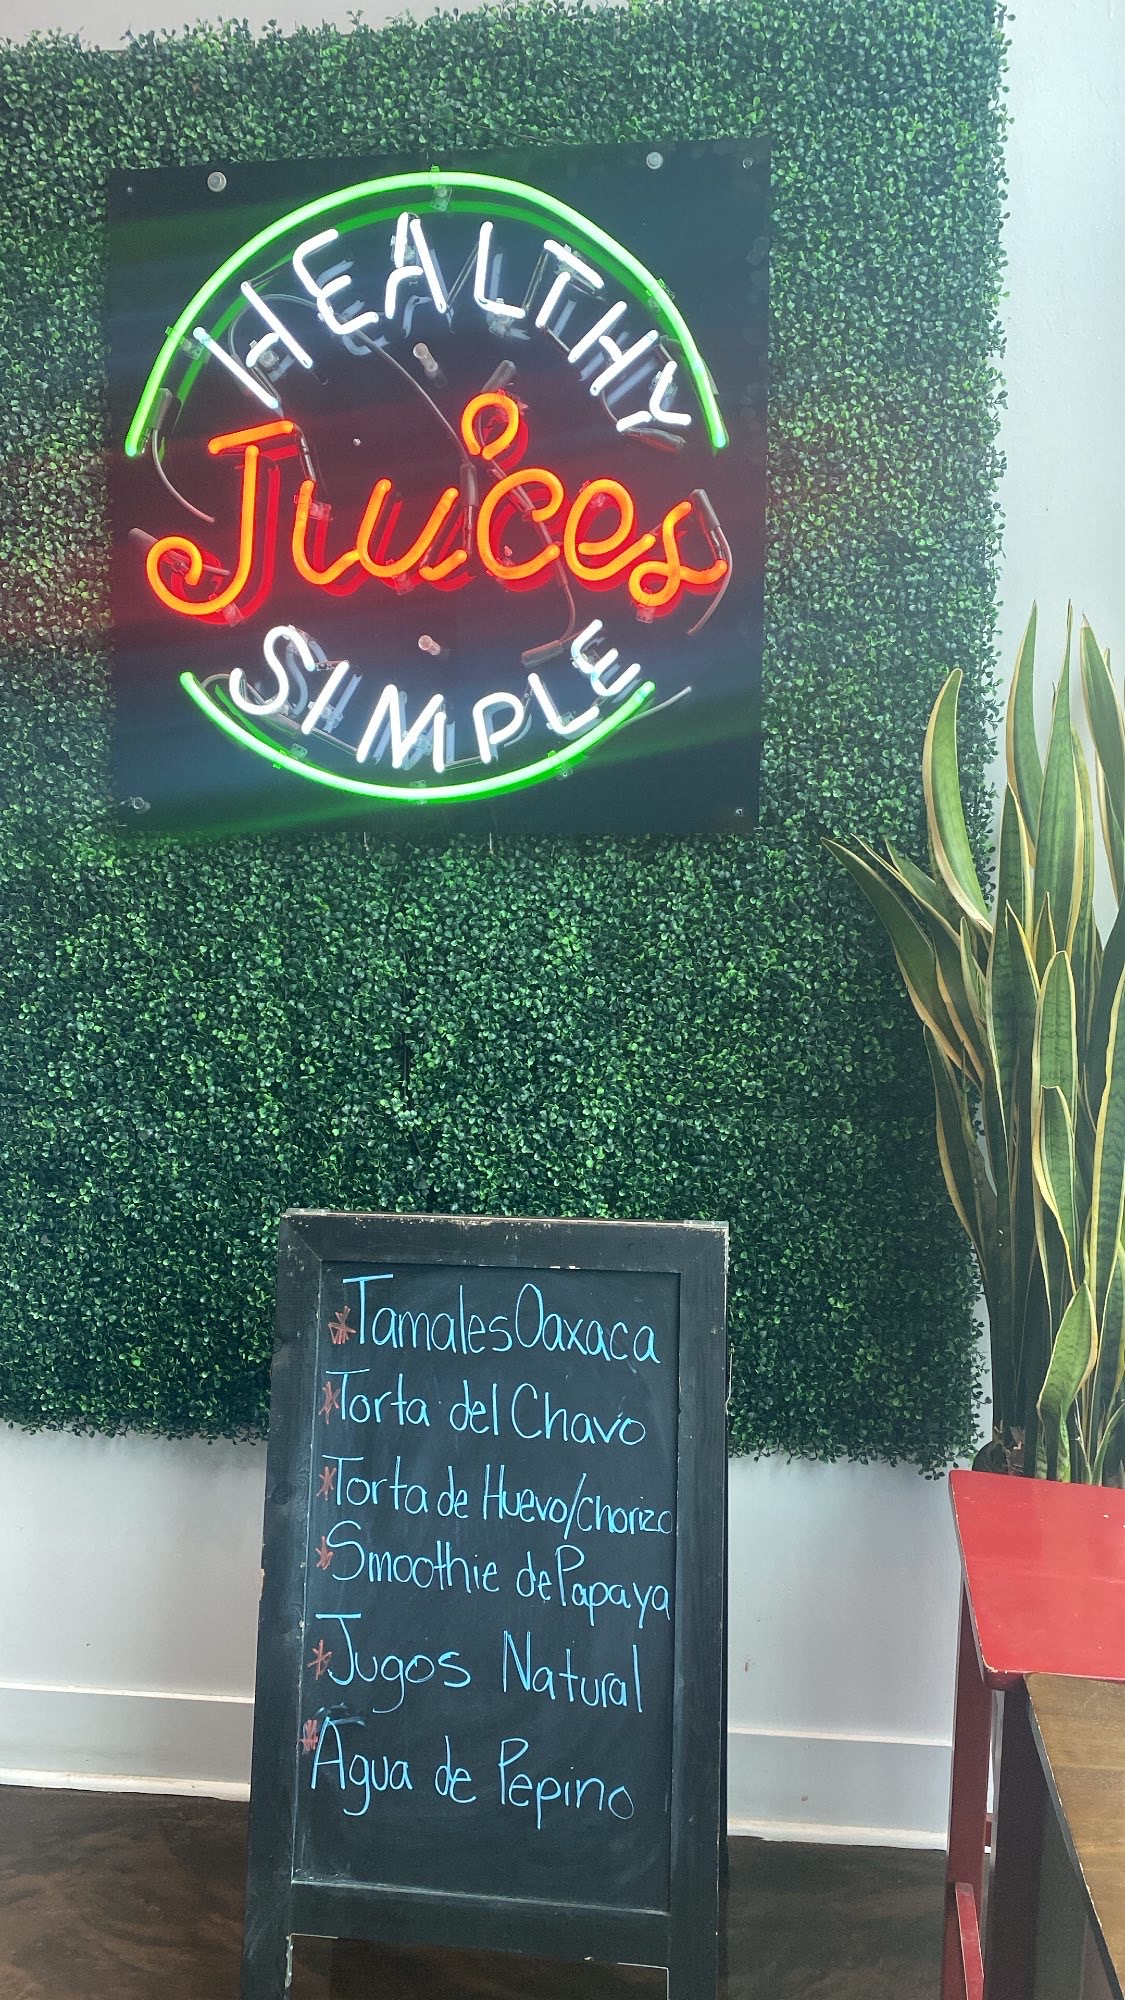 HEALTHY
Juices
SIMPLE
*Tamales Oaxaca
*Torta del Chavo
*Torta de Huevo/chorizo
*Smoothie de Papaya
*Jugos Natural
*Agua de Pepino